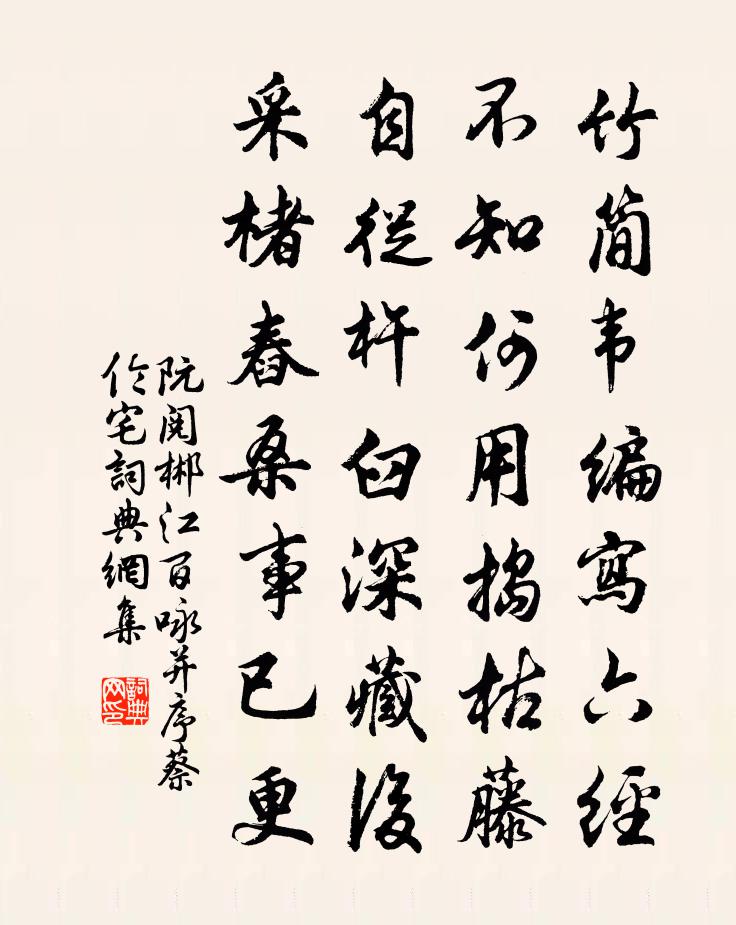 竹简韦编写六經
不知何用搗枯藤
自從杵臼深藏後
采楮舂桑事已更
阮閱郴江百咏并序蔡
伦宅詞典網集
詞典网印